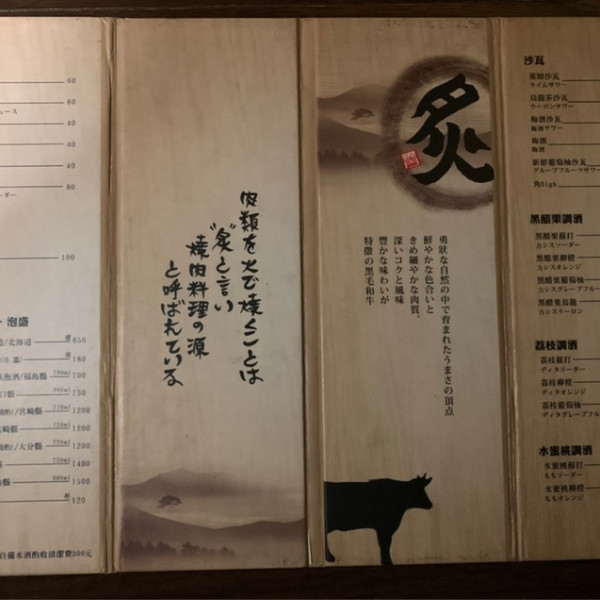 60
60
ュース
40
40
40
ーダー
80
100
・泡盛
/北海道 850
180
泡酒/福島縣 700ml 700
口縣 750
/宮崎縣 1200
崎縣 720ml 1200
/大分縣 1200
720ml 1400
島縣 900ml 1500
杯 120
自備水酒酌收清潔費300元
肉類を火で焼くことは
“炙”と言い
焼肉料理の源
と呼ばれている
炙
勇壮な自然の中で育まれたうまさの頂点
鮮やかな色合いと
きめ細やかな肉質。
深いコクと風味
豊かな味わいが
特徴の黒毛和牛
沙瓦
萊姆沙瓦
ライムサワー
烏龍茶沙瓦
ウーロンサワー
梅酒沙瓦
梅酒サワー
梅酒
梅酒
新鮮葡萄柚沙瓦
グループフルーツサワー
角High
黑醋栗調酒
黑醋栗蘇打
カシスソーダー
黑醋栗柳橙
カシスオレンジ
黑醋栗葡萄柚
カシスグレープフルー
黑醋栗烏龍
カシスラーロン
荔枝調酒
荔枝蘇打
ディタリーダー
荔枝柳橙
ディタオレンジ
荔枝葡萄柚
ディタグレープフル
水蜜桃調酒
水蜜桃蘇打
ももソーダー
水蜜桃柳橙
ももオレンジ